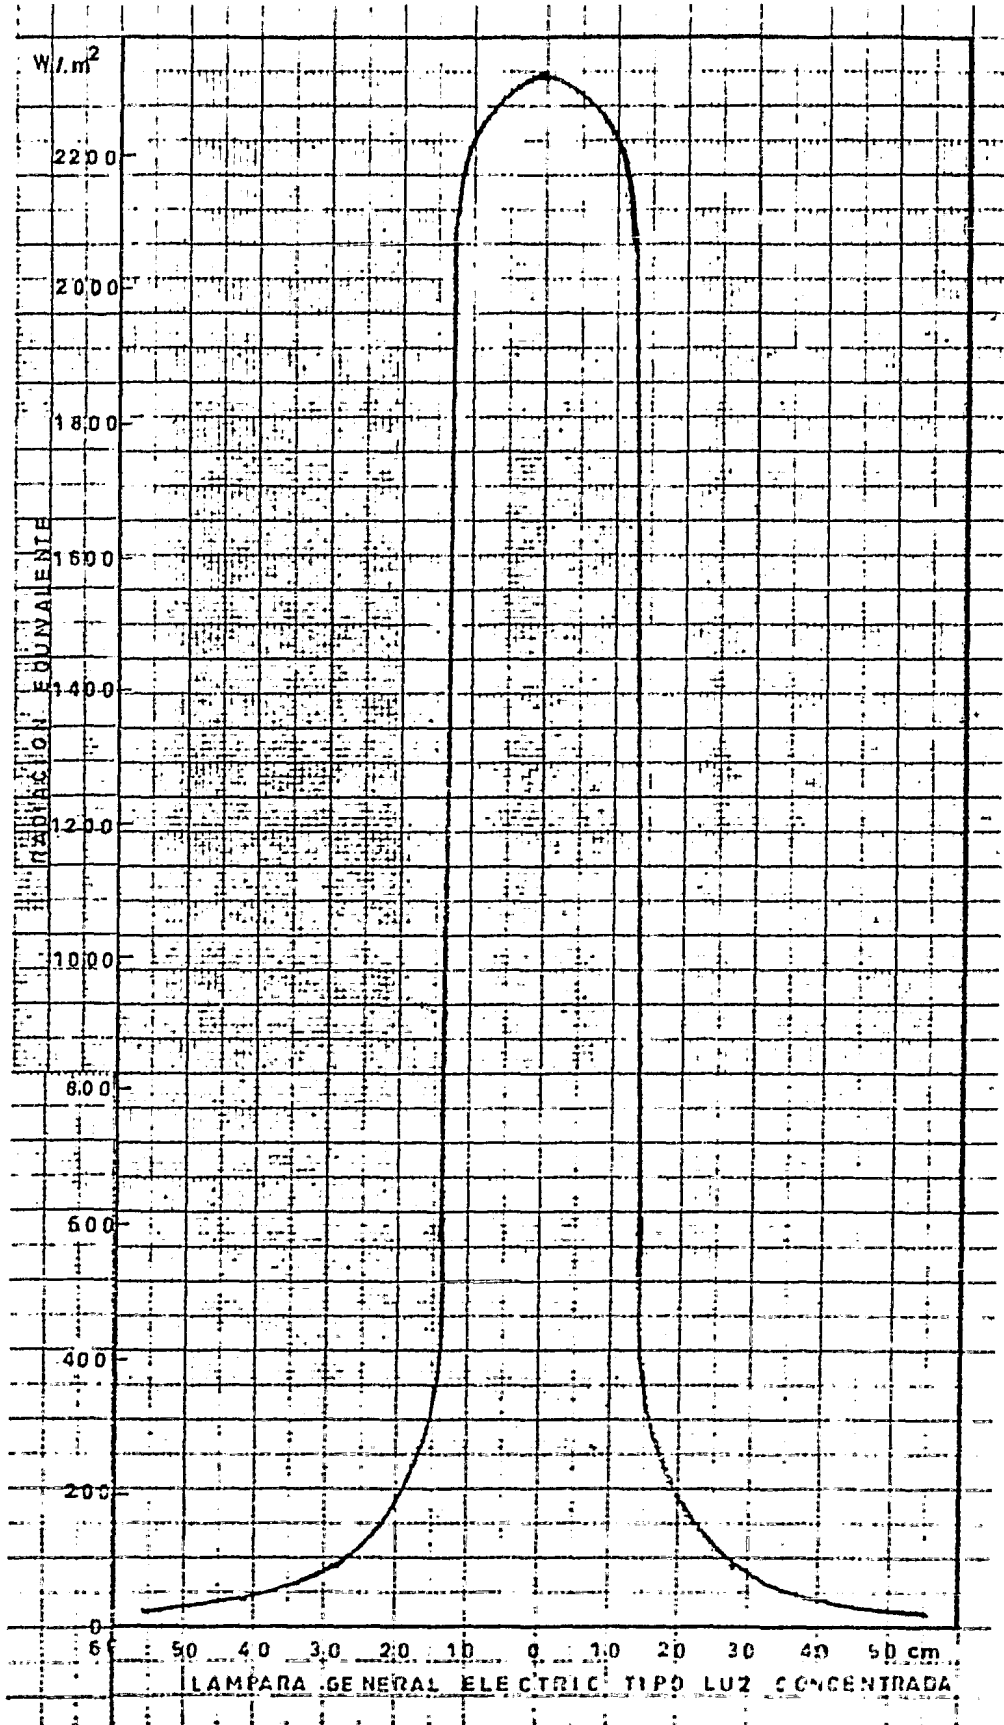 W/m²
2200
2000
1800
1600
1400
1200
1000
800
600
400
200
0
RADIACION EQUIVALENTE
60 50 40 30 20 10 0 10 20 30 40 50 cm
LAMPARA GENERAL ELECTRIC TIPO LUZ CONCENTRADA